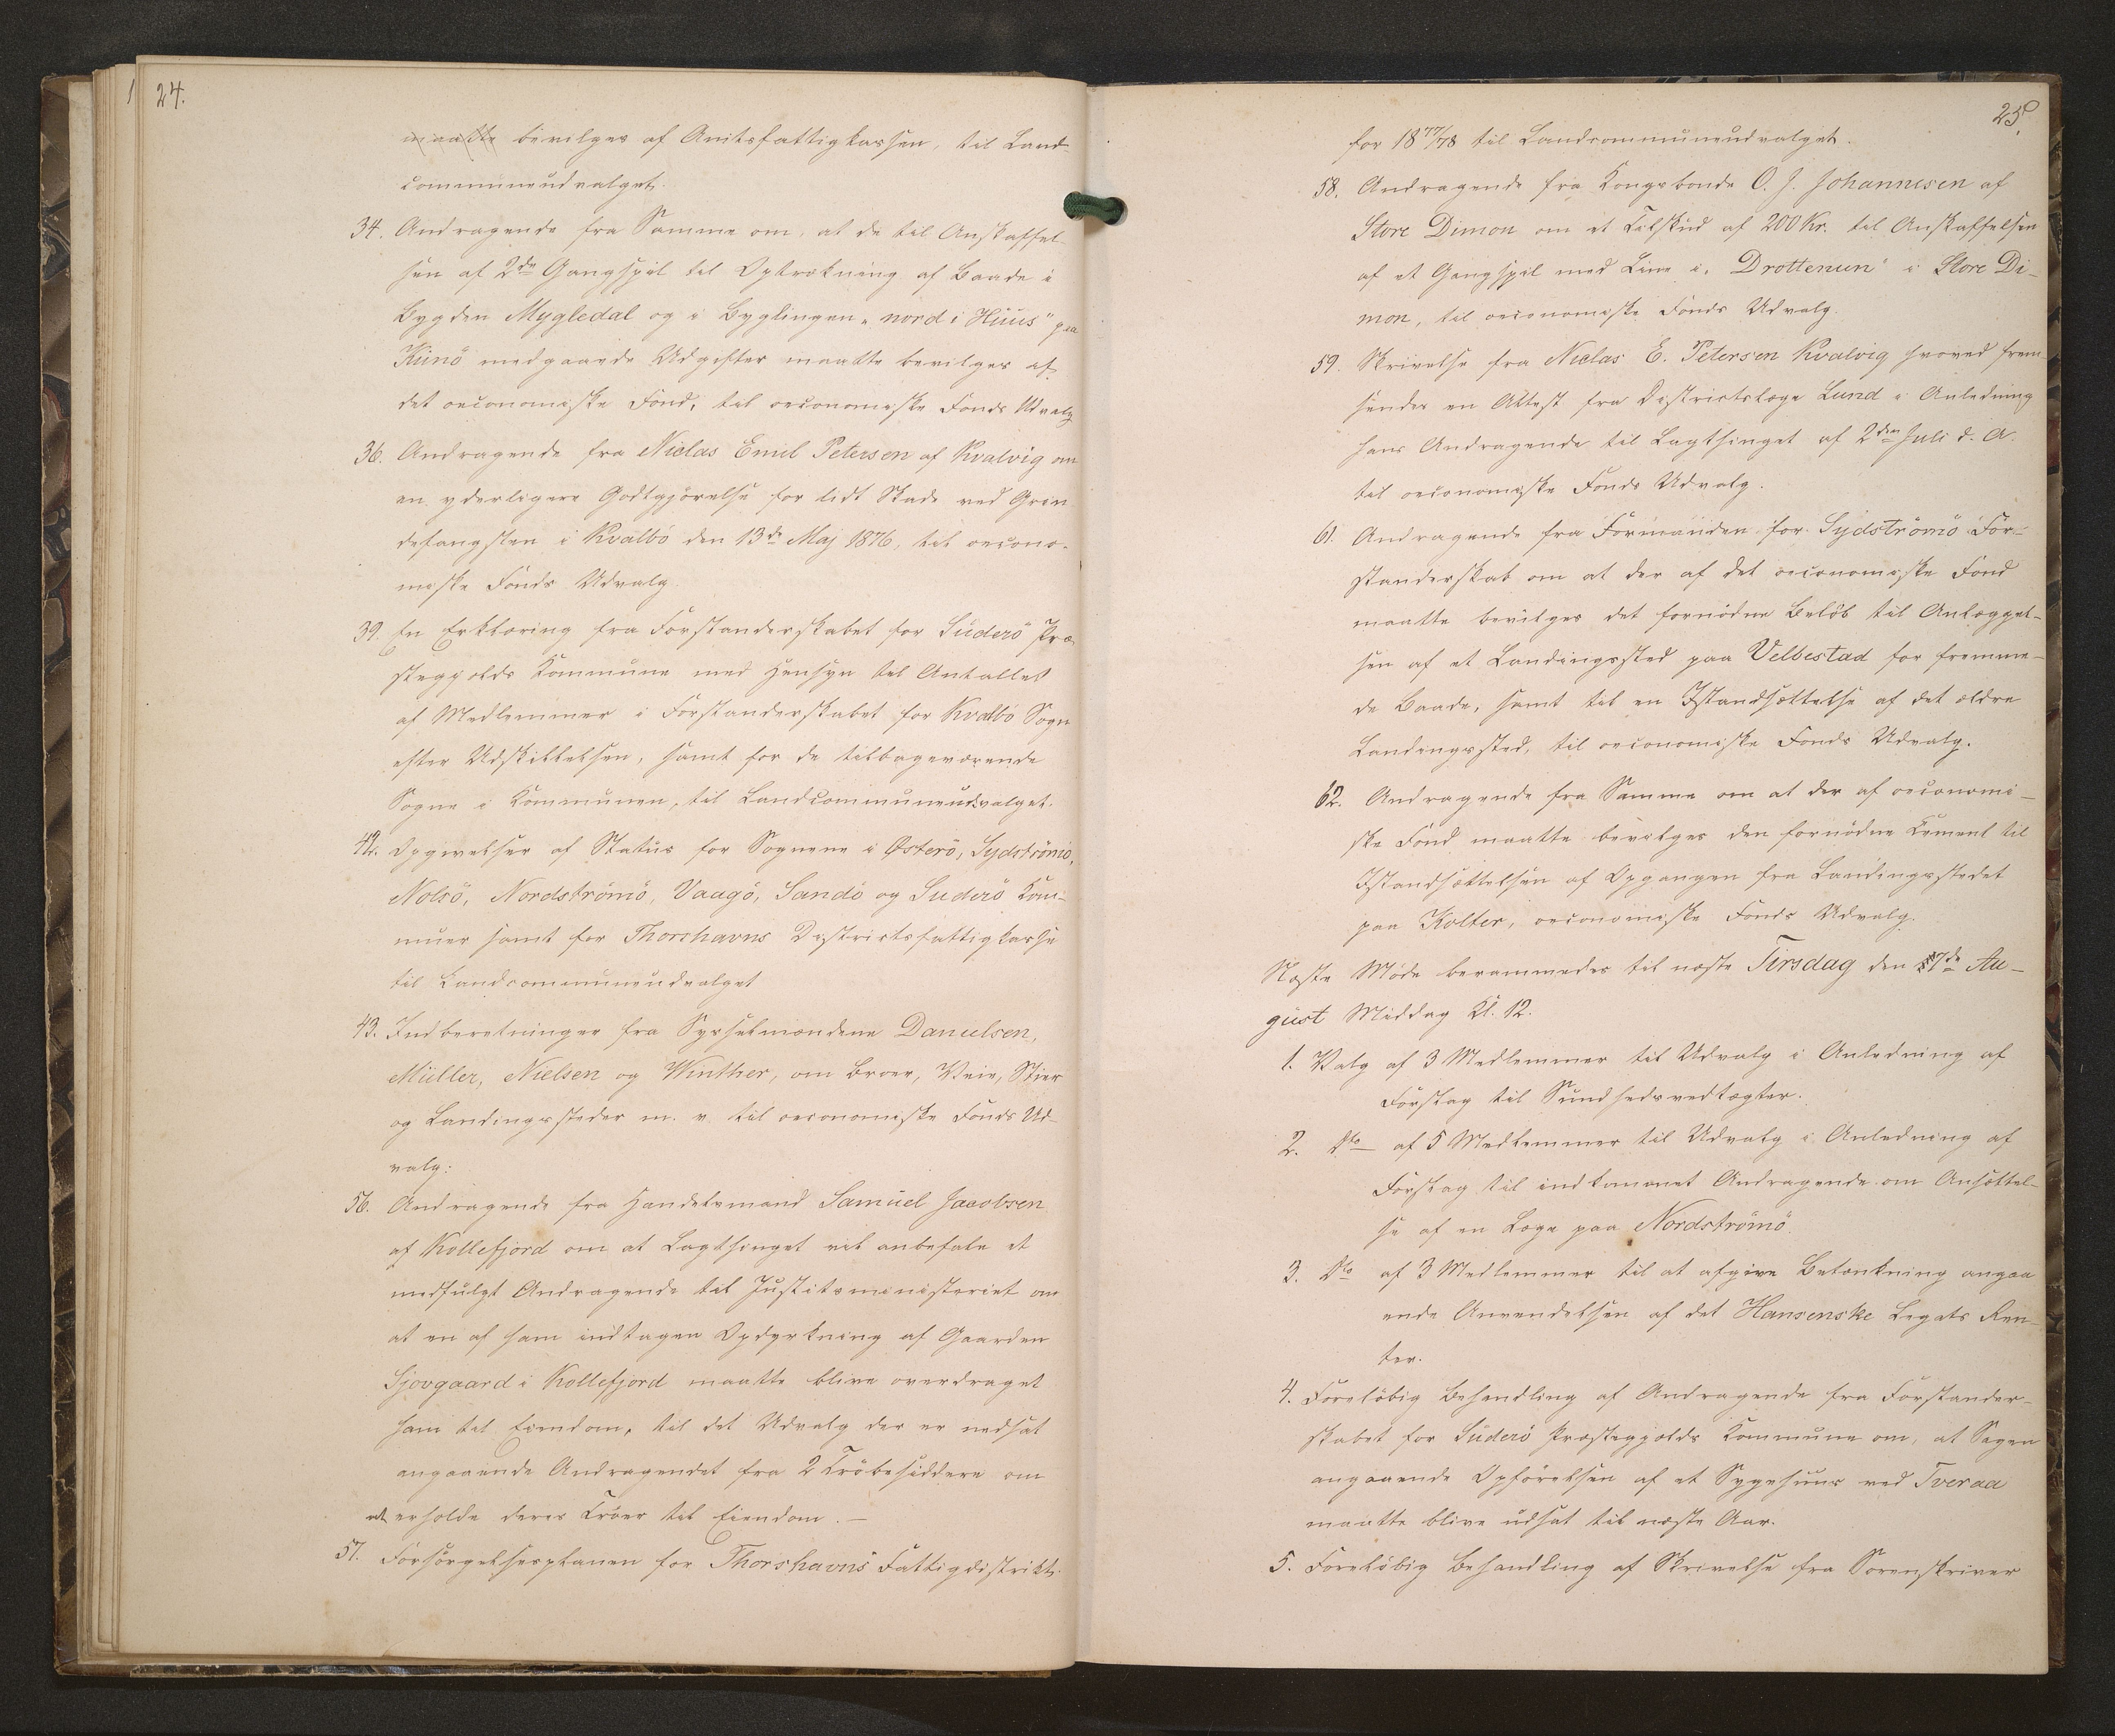 24.
maatte bevilges af Amtsfattigkassen, til Land-
communeudvalget.
34. Andragende fra Samme om, at de til Anskaffel-
sen af 2de Gangspil til Optrækning af Baade i
Bygden Mygledal og i Byglingen "nord i Huus" paa
Kunö medgaaede Udgifter maatte bevilges af
det oeconomiske Fond, til oeconomiske Fonds Udvalg
36. Andragende fra Niclas Emil Petersen af Kvalvig om
en yderligere Godtgjörelse for lidt Skade ved Grin
defangsten i Kvalbö den 13de Maj 1876, til oecono-
miske Fonds Udvalg.
39. En Erklæring fra Forstanderskabet for Suderö Præ-
stegjælds Kommune med Hensyn til Antallet
af Medlemmer i Forstanderskabet for Kvalbö Sogn
efter Udskillelsen, samt for de tilbageværende
Sogne i Kommunen, til Landcommuneudvalget.
42. Opgivelser af Status for Sognene i Østerö, Sydströmö,
Nolsö, Nordströmö, Vaagö, Sandö og Suderö Kom-
muer samt for Thorshavns Districtsfattigkasse
til Landcommuneudvalget
43. Indberetninger fra Sysselmændene Danielsen,
Müller, Nielsen og Winther, om Broer, Veie, Stier
og Landingssteder m. v. til oeconomiske Fonds Ud-
valg.
56. Andragende fra Handelsmand Samuel Jacobsen
af Kollefjord om at Lagthinget vil anbefale et
medfulgt Andragende til Justitsministeriet om
at en af ham indtagen Opdyrkning af Gaarden
Sjovgaard i Kollefjord maatte blive overdraget
ham til Eiendom, til det Udvalg der er nedsat
angaaende Andragendet fra 2 Tröbesiddere om
at erholde deres Tröer til Eiendom. —
57. Forsörgelsesplanen for Thorshavns Fattigdistrikt
25.
for 1877/78 til Landcommuneudvalget.
58. Andragende fra Kongsbonde O. J. Johannesen af
Store Dimon om et Tilskud af 200 Kr. til Anskaffelsen
af et Gangspil med Line i "Drottenun" i Store Di-
mon, til oeconomiske Fonds Udvalg.
59. Skrivelse fra Niclas E. Petersen Kvalvig hvoved frem-
sendes en Attest fra Districtslæge Lund i Anledning
hans Andragende til Lagthinget af 2den Juli d. A.
til oeconomiske Fonds Udvalg.
61. Andragende fra Formanden for Sydströmö For-
standerskab om at der af det oeconomiske Fond
maatte bevilges det fornödne Belöb til Anlæggel-
sen af et Landingssted paa Velbestad for fremme-
de Baade, samt til en Istandsættelse af det ældre
Landingssted, til oeconomiske Fonds Udvalg.
62. Andragende fra Samme om at der af oeconomi-
ske Fond maatte bevilges den fornödne Cement til
Istandsættelsen af Opgangen fra Landingsstedet
paa Kolter, oeconomiske Fonds Udvalg.
Næste Möde berammedes til næste Tirsdag den 7de Au-
gust Middag Kl. 12.
1. Valg af 3 Medlemmer til Udvalg i Anledning af
Forslag til Sundhedsvedtægter.
2. Do — af 5 Medlemmer til Udvalg i Anledning af
Forslag til indkommet Andragende om Ansættel-
se af en Læge paa Nordströmö.
3. Do af 3 Medlemmer til at afgive Betænkning angaa
ende Anvendelsen af det Hansenske Legats Ren-
ter.
4. Forelöbig Behandling af Andragende fra Forstander-
skabet for Suderö Præstegjælds Kommune om, at Sagen
angaaende Opförelsen af et Sygehuus ved Tveraa
maatte blive udsat til næste Aar.
5. Forelöbig Behandling af Skrivelse fra Sorenskriver